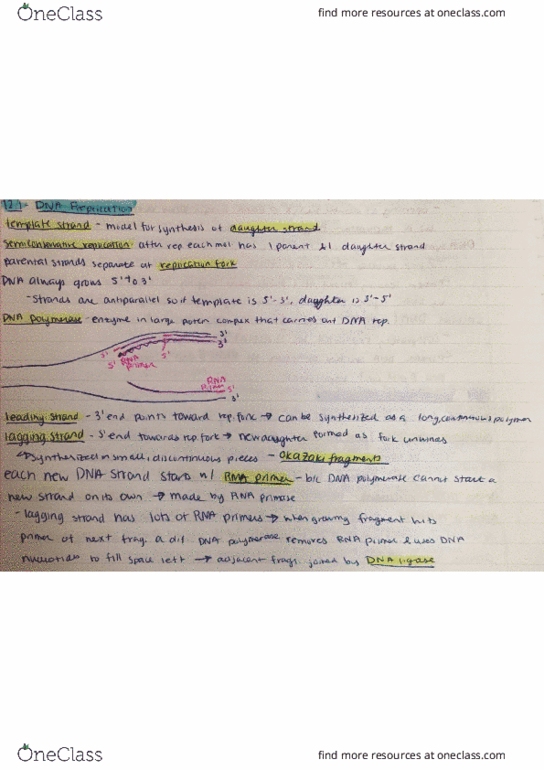 OneClass
find more resources at oneclass.com
12.1 - DNA Replication
template strand - model for synthesis of daughter strand
semiconservative replication: after rep each mol has 1 parent & 1 daughter strand
parental strands separate at replication fork
DNA always grows 5' to 3'
- Strands are antiparallel so if template is 5'-3', daughter is 3'-5'
DNA polymerase - enzyme in large protein complex that carries out DNA rep.
3'
3'
3'
5'
5'
RNA primer
RNA primer
5'
3'
leading strand - 3' end points toward rep. fork → can be synthesized as a long, continuous polymer
lagging strand - 5' end towards rep fork → new daughter formed as fork unwinds
↳ synthesized in small, discontinuous pieces - okazaki fragments
each new DNA strand starts w/ RNA primer - b/c DNA polymerase cannot start a
new strand on its own → made by RNA primase
- lagging strand has lots of RNA primers → when growing fragment hits
primer of next frag. a dif DNA polymerase removes RNA primer & uses DNA
nucleotides to fill space left → adjacent frags. joined by DNA ligase
OneClass
find more resources at oneclass.com